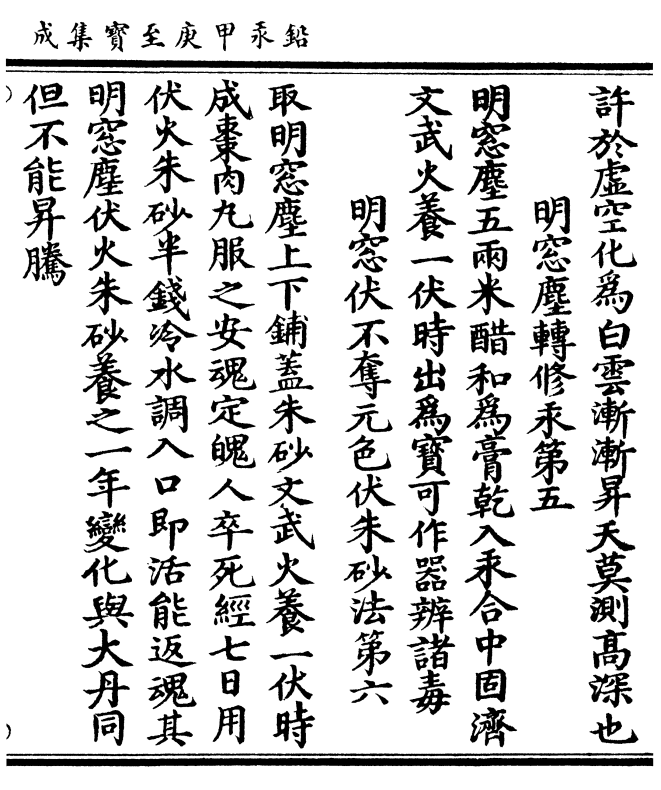 鉛汞甲庚至寶集成
許於虛空化爲白雲漸漸昇天莫測高深也
明窓塵轉修汞第五
明窓塵五兩米醋和爲膏乾入汞合中固濟
文武火養一伏時出爲寳可作器辨諸毒
明窓伏不奪元色伏朱砂法第六
取明窓塵上下鋪蓋朱砂文武火養一伏時
成棗肉丸服之安魂定魄人卒死經七日用
伏火朱砂半錢冷水調入口即活能返魂其
明窓塵伏火朱砂養之一年變化與大丹同
但不能昇騰